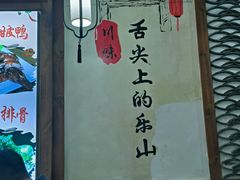 甜皮鸭
排骨
川味
舌尖上的乐山